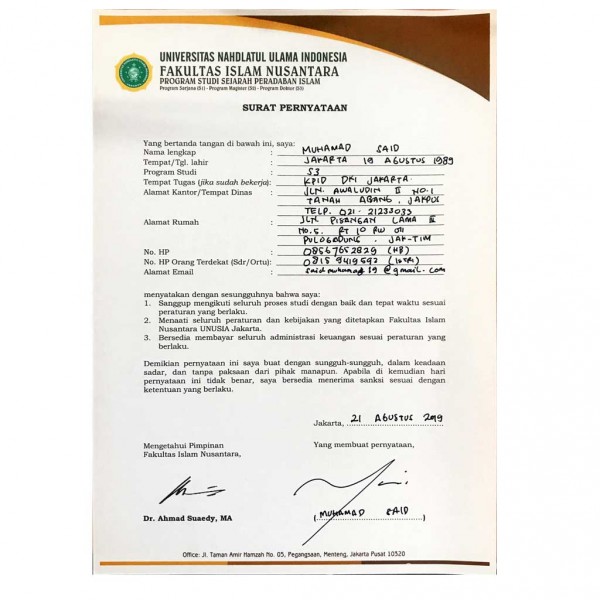 UNIVERSITAS NAHDLATUL ULAMA INDONESIA
FAKULTAS ISLAM NUSANTARA
PROGRAM STUDI SEJARAH PERADABAN ISLAM
Program Sarjana (S1) - Program Magister (S2) - Program Doktor (S3)
SURAT PERNYATAAN
Yang bertanda tangan di bawah ini, saya:
Nama lengkap : MUHAMAD SAID
Tempat/Tgl. lahir : JAKARTA 19 AGUSTUS 1989
Program Studi : S3
Tempat Tugas (jika sudah bekerja): KPID DKI JAKARTA
Alamat Kantor/Tempat Dinas : JLN. AWALUDIN II NO.1
TANAH ABANG, JAKPUS
TELP. 021-21233033
Alamat Rumah : JLN PISANGAN LAMA III
NO.5. RT 10 RW 011
PULOGADUNG, JAK-TIM
No. HP : 08567652829 (HB)
No. HP Orang Terdekat (Sdr/Ortu): 0815 9419592 (ISTRI)
Alamat Email : saidmuhamad19@gmail.com
menyatakan dengan sesungguhnya bahwa saya:
1. Sanggup mengikuti seluruh proses studi dengan baik dan tepat waktu sesuai
peraturan yang berlaku.
2. Menaati seluruh peraturan dan kebijakan yang ditetapkan Fakultas Islam
Nusantara UNUSIA Jakarta.
3. Bersedia membayar seluruh administrasi keuangan sesuai peraturan yang
berlaku.
Demikian pernyataan ini saya buat dengan sungguh-sungguh, dalam keadaan
sadar, dan tanpa paksaan dari pihak manapun. Apabila di kemudian hari
pernyataan ini tidak benar, saya bersedia menerima sanksi sesuai dengan
ketentuan yang berlaku.
Jakarta, 21 AGUSTUS 2019
Mengetahui Pimpinan
Fakultas Islam Nusantara,
Yang membuat pernyataan,
Dr. Ahmad Suaedy, MA
(MUHAMAD SAID)
Office: Jl. Taman Amir Hamzah No. 05, Pegangsaan, Menteng, Jakarta Pusat 10320